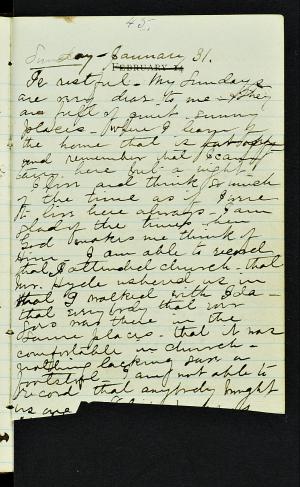 45.
Sunday - January 31.
FEBRUARY 14
So restful - My Sundays
are very dear to me - They
are full of quiet sunny
places - when I learn of
the home that is not
and remember that I can
here but a night
I live and think so much
of the time as if I were
to live here always. I am
glad of the times
God makes me think of
Him - I am able to record
that I attended church - that
Mr. Hyde ushered us in
that I walked with Ida -
that every body that ever
goes was there in the
same places - that it was
comfortable in church -
nothing lacking save a
I am not able to
record that anybody brought
us one